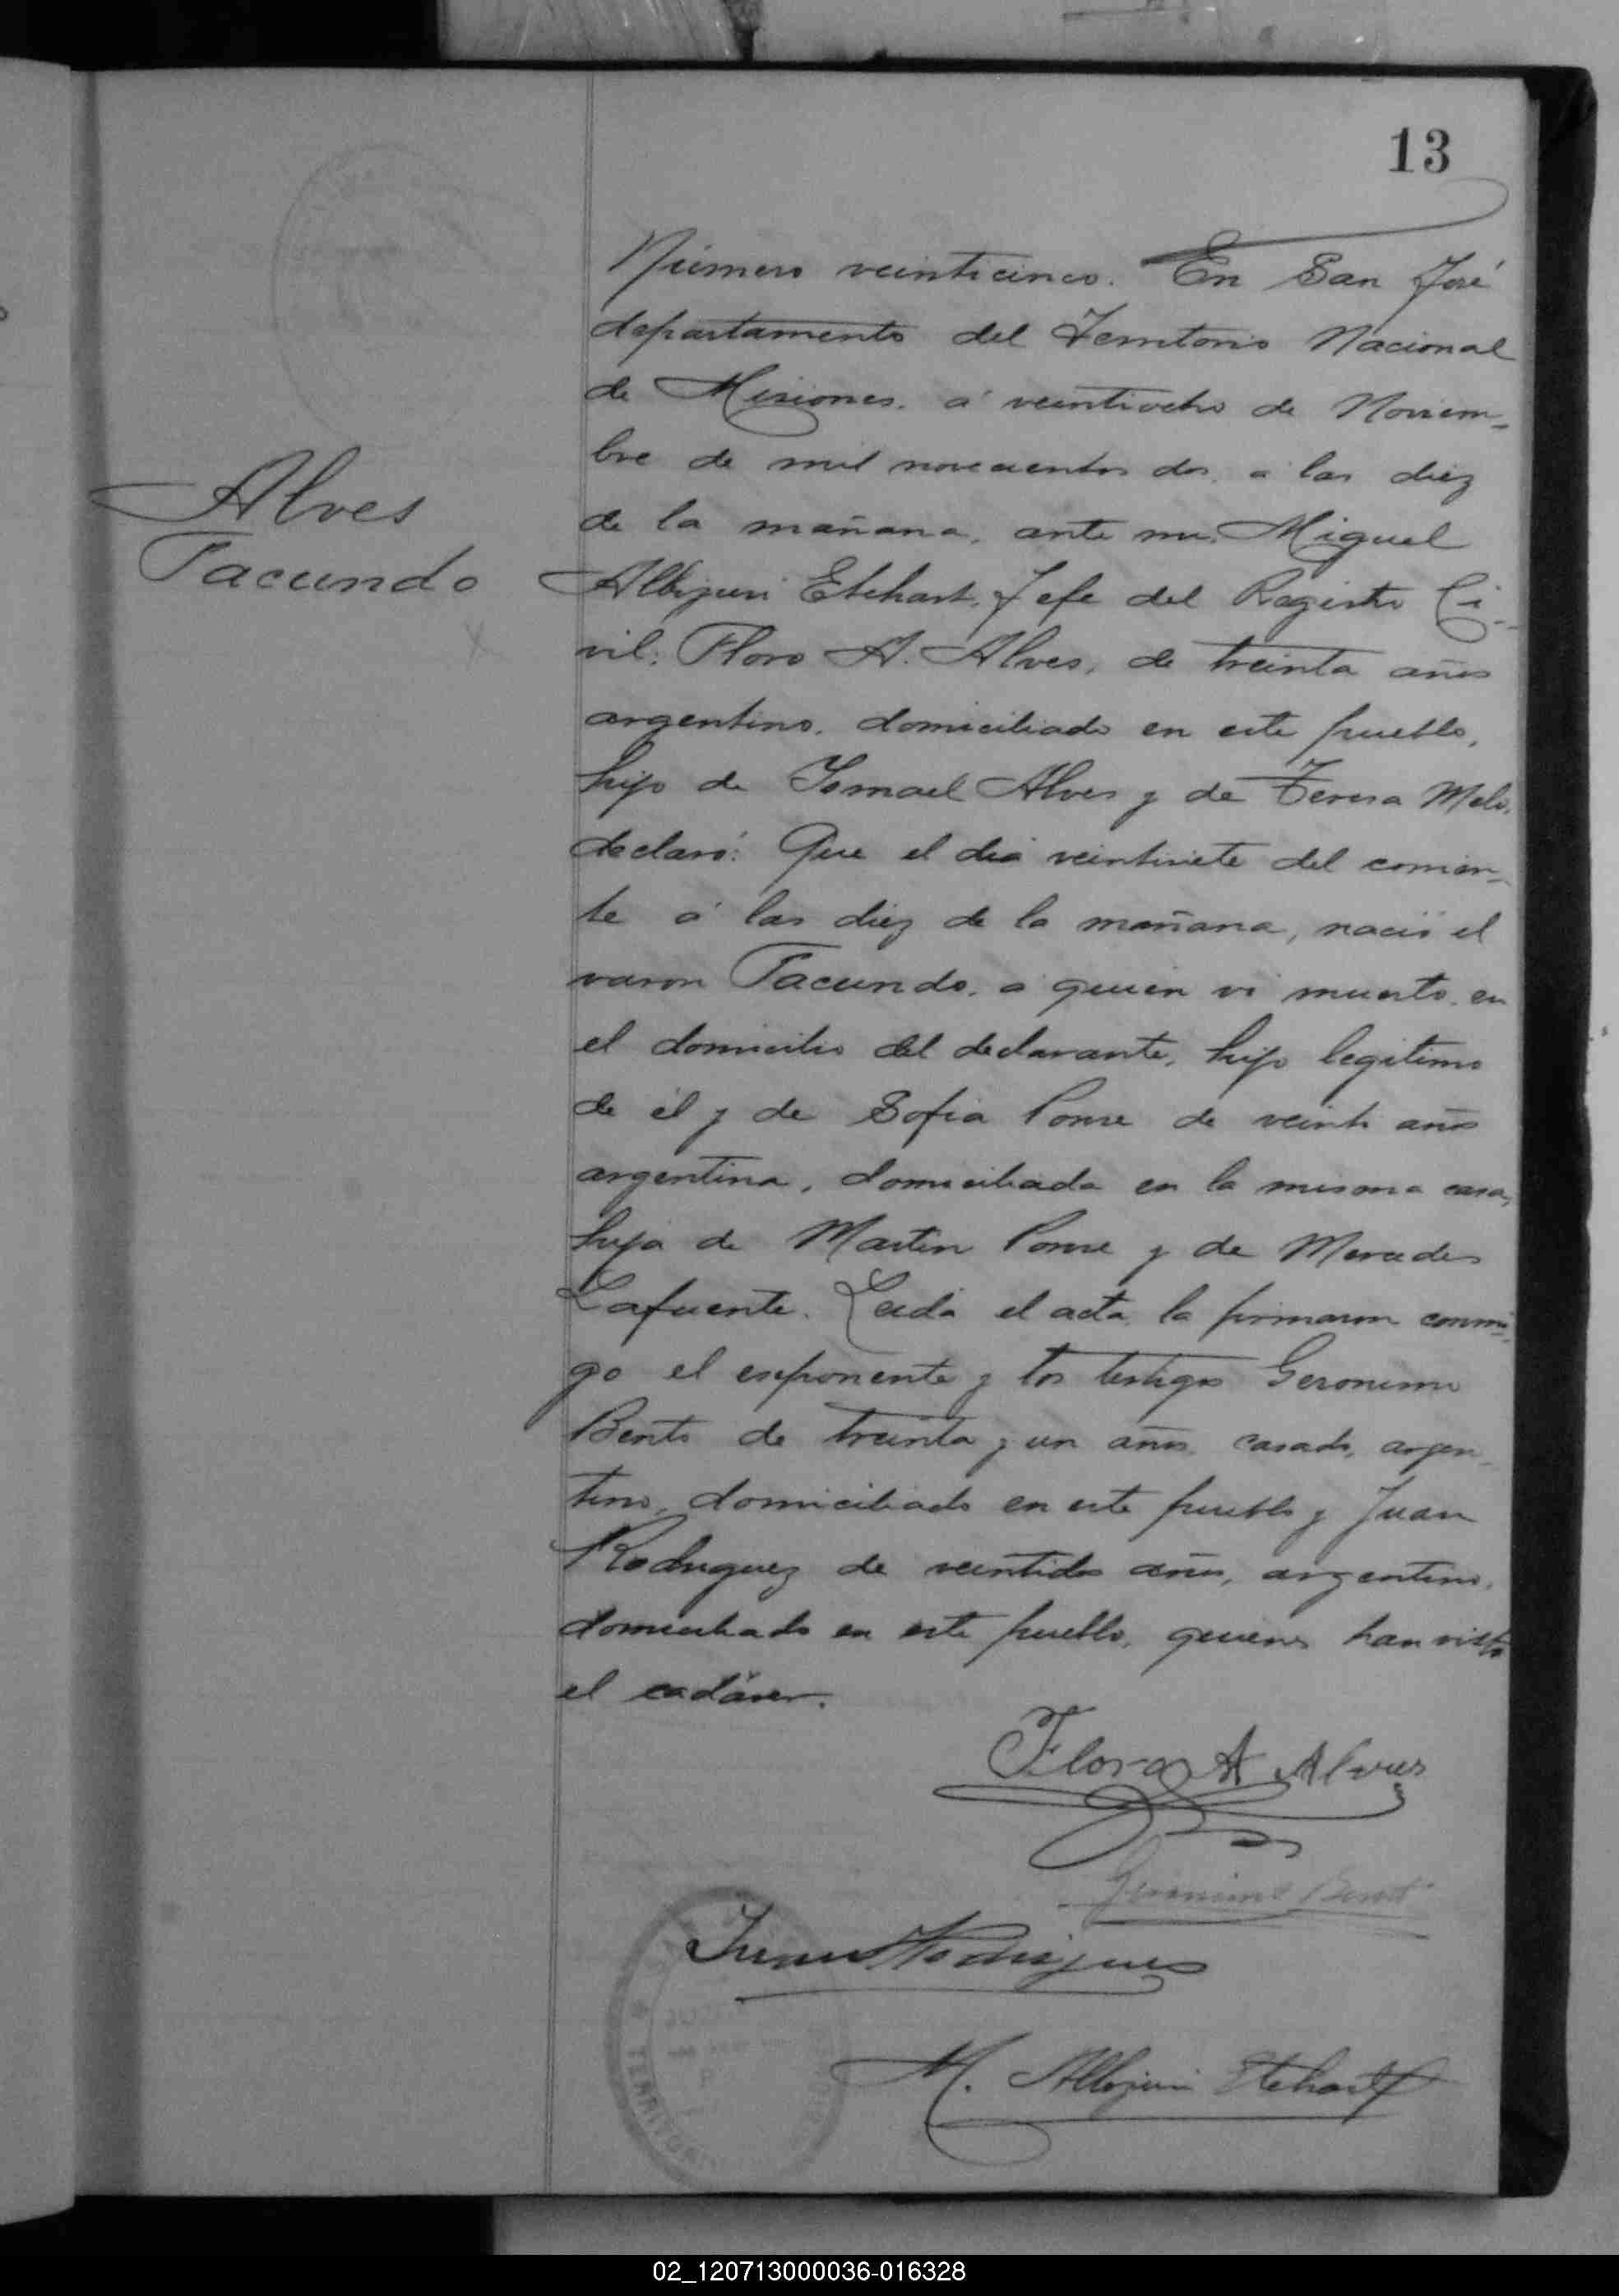 13
Número veinticinco. En San José
departamento del Territorio Nacional
de Misiones. á veintiocho de Noviem-
bre de mil novecientos dos, á las diez
Alves
de la mañana, ante mi, Miguel
Facundo
Albijuri Etchart, Jefe del Registro Ci-
vil: Floro A. Alves, de treinta años
argentino, domiciliado en este pueblo,
hijo de Ismael Alves y de Teresa Melo,
declaró: Que el dia veintisiete del corrien-
te á las diez de la mañana, nació el
varon Facundo, á quien vi muerto, en
el domicilio del declarante, hijo legitimo
de él y de Sofia Ponse de veinte años
argentina, domiciliada en la misma casa,
hija de Martin Ponse y de Mercedes
Lafuente. Leida el acta, la firmaron conmi-
go el exponente y los testigos Geronimo
Bento de treinta y un años, casado, argen-
tino, domiciliado en este pueblo y Juan
Rodriguez de veintidos años, argentino,
domiciliado en este pueblo, quienes han visto
el cadáver.
Floro A Alves
Geronimo Bento
Juan Rodrigues
TERRITORI
M. Albijuri Etchart
02_120713000036-016328